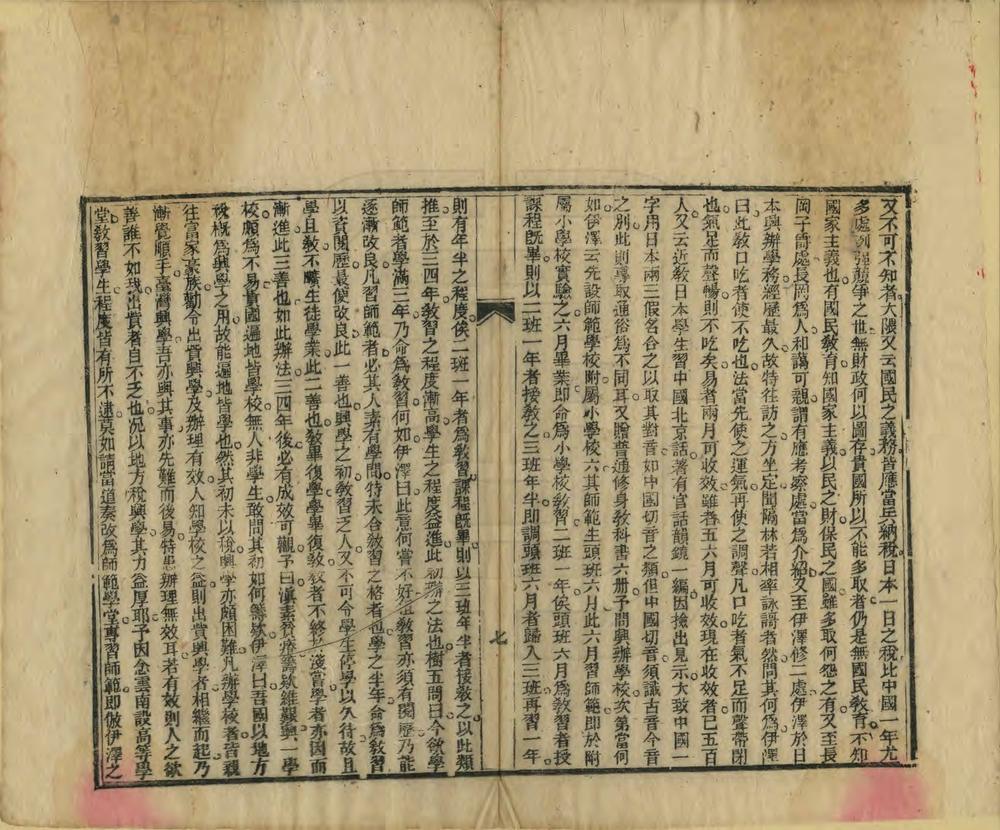 又不可不知者大隈又云國民之義務皆應當兵納稅日本一日之稅比中國一年尤
多處列强競爭之世無財政何以圖存貴國所以不能多取者仍是無國民敎育不知
國家主義也有國民敎育知國家主義以民之財保民之國雖多取何怨之有又至長
岡子爵處長岡爲人和藹可親謂有應考察處當爲介紹又至伊澤修二處伊澤於日
本興辦學務經歷最久故特往訪之方坐定聞隔林若相率詠謌者然問其何爲伊澤
曰此敎口吃者使不吃也法當先使之運氣再使之調聲凡口吃者氣不足而聲帶閉
也氣足而聲暢則不吃矣易者兩月可收效難者五六月可收效現在收效者已五百
人又云近敎日本學生習中國北京話著有官話韻鏡一編因檢出見示大致中國一
字用日本兩三假名合之以取其對音如中國切音之類但中國切音須識古音今音
之別此則專取通俗爲不同耳又贈普通修身敎科書六册予問興辦學校次第當何
如伊澤云先設師範學校附屬小學校六其師範生頭班六月此六月習師範卽於附
屬小學校實驗之六月畢業卽命爲小學校敎習二班一年俟頭班六月爲敎習者授
課程旣畢則以二班一年者接敎之三班年半卽調頭班六月者歸入三班再習一年
七
則有年半之程度俟二班一年者爲敎習課程旣畢則以三班年半者接敎之以此類
推至於三四年敎習之程度漸高學生之程度益進此初辦之法也樹五問曰今欲學
師範者學滿三年乃命爲敎習何如伊澤曰此意何嘗不好但敎習亦須有閱歷乃能
逐漸改良凡習師範者必其人素有學問特未合敎習之格者也學之半年命爲敎習
以資閱歷最便改良此一善也興學之初敎習乏人又不可令學生停學以久待故且
學且敎不曠生徒學業此二善也敎畢復學學畢復敎敎者不終於淺嘗學者亦因而
漸進此三善也如此辦法三四年後必有成效可觀予曰滇素貧瘠籌欵維艱興一學
校頗爲不易貴國遍地皆學校無人非學生敢問其初如何籌欵伊澤曰吾國以地方
稅槪爲興學之用故能遍地皆學也然其初未以稅興學亦頗困難凡辦學校者皆親
往富家豪族勸令出貲興學及辦理有效人知學校之益則出貲興學者相繼而起乃
漸覺順手臺灣興學吾亦與其事亦先難而後易特患辦理無效耳若有效則人之欲
善誰不如我出貲者自不乏也況以地方稅興學其力益厚耶予因念雲南設高等學
堂敎習學生程度皆有所不逮莫如請當道奏改爲師範學堂專習師範卽倣伊澤之